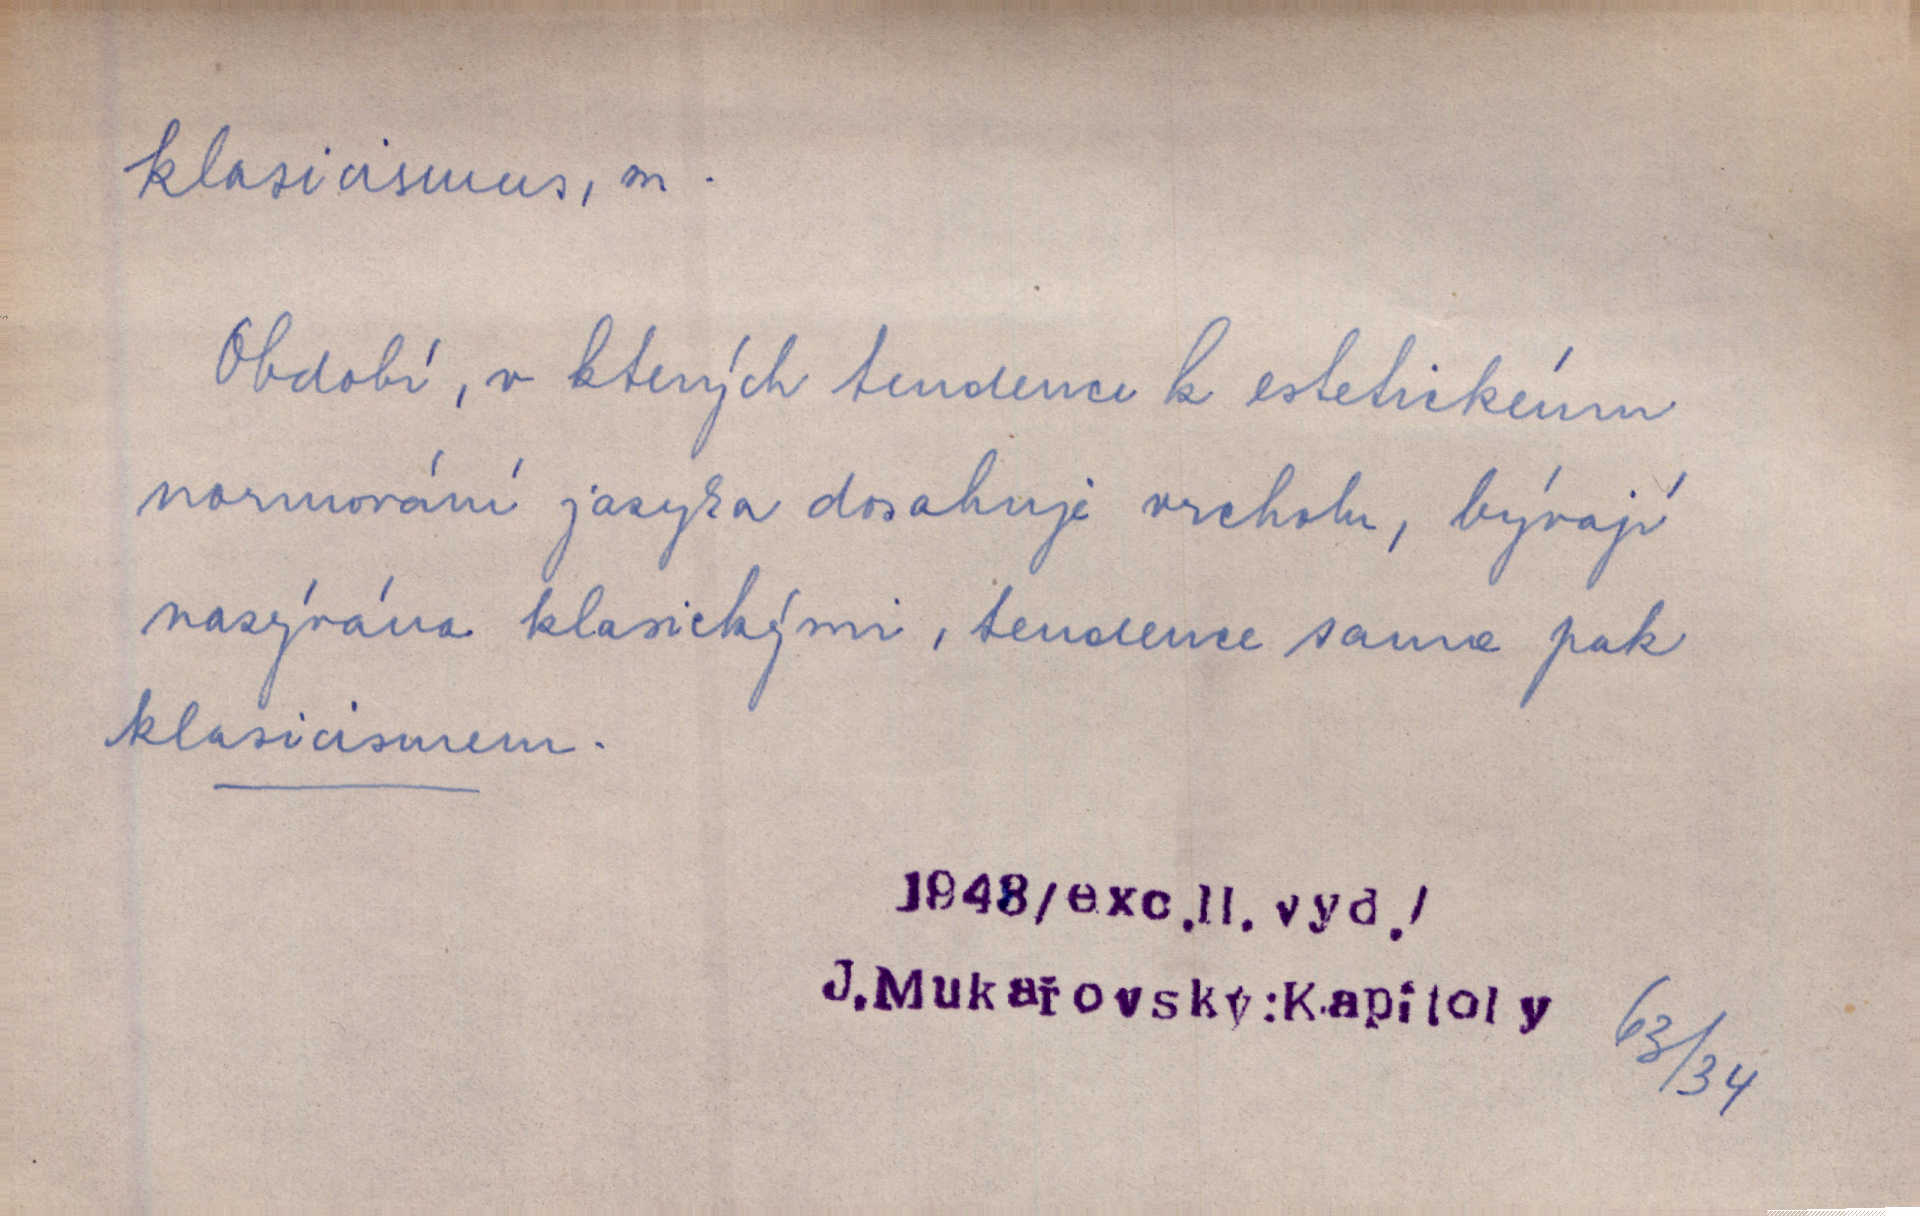 klasicismus, m.
Období, v kterých tendence k estetickému
normování jazyka dosahuje vrcholu, bývají
nazývána klasickými, tendence sama pak
klasicismem.
1948/exc.II.vyd./
J.Mukařovský:Kapitoly
63/34